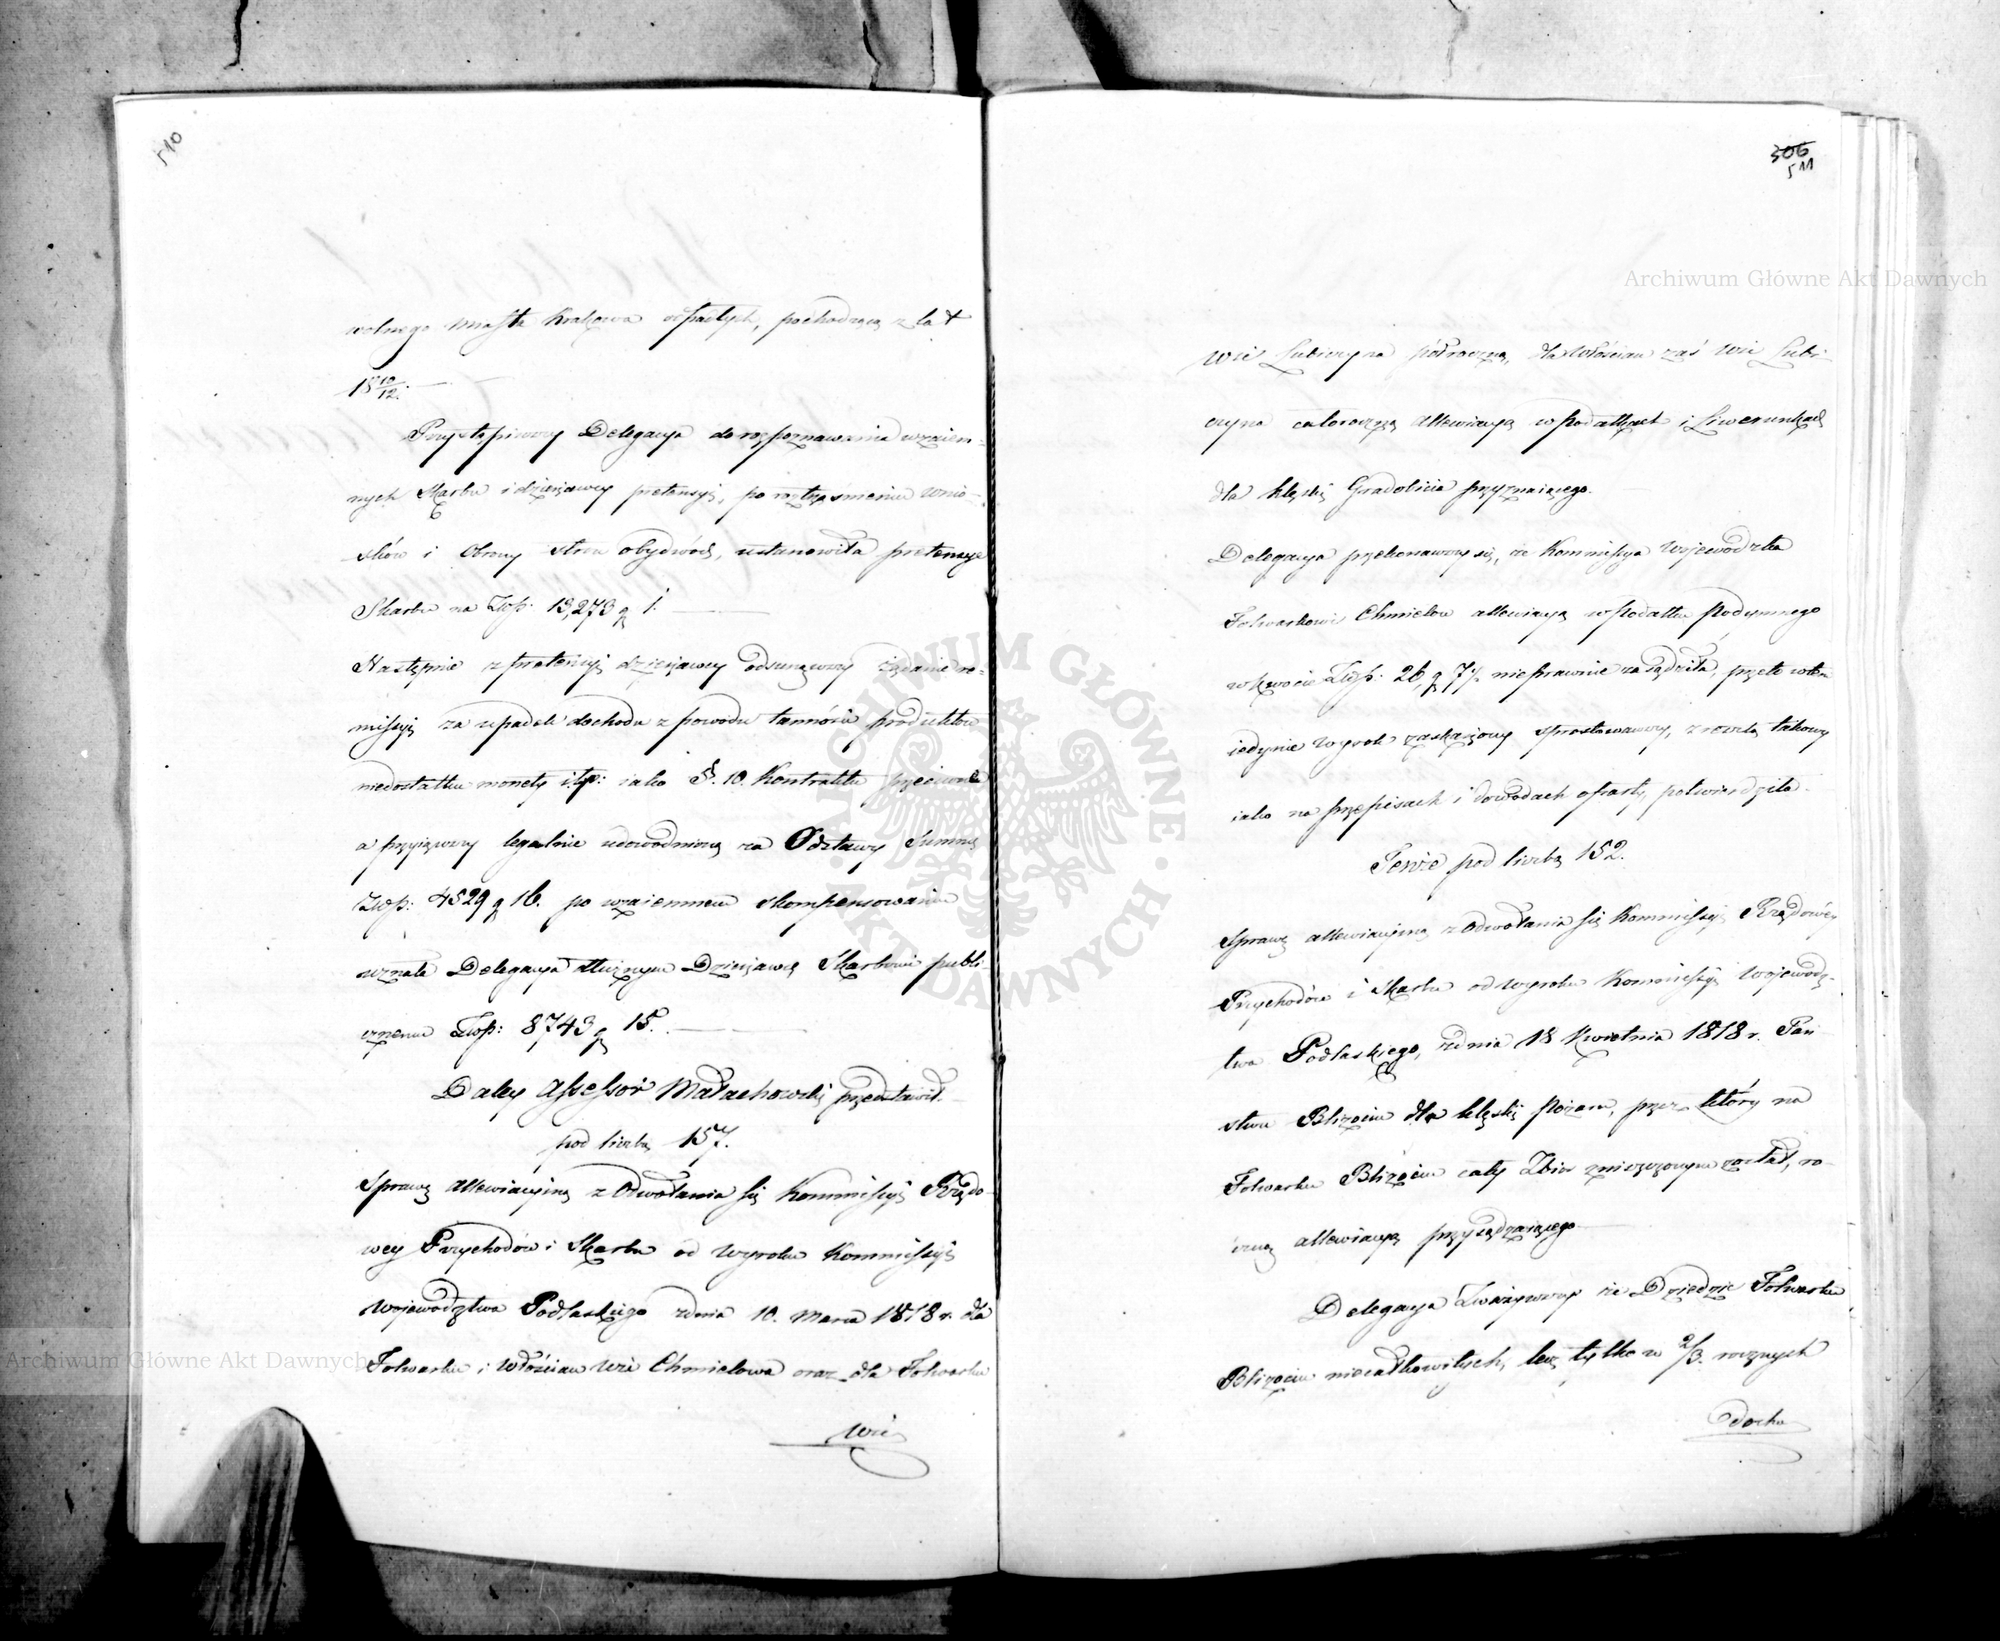 510
wolnego Miasta Krakowa opartych, pochodzącą z lat
18 10/12. —
Przystąpiwszy Delegacya do rozpoznawania wzaiem-
nych Skarbu i dzierżawcy pretensyi, po roztrząśnieniu wnio-
sków i Obrony stron obydwóch, ustanowiła pretensye
Skarbu na Złp: 13,273 g 1. —
Następnie z pretensyi dzierżawcy odsunąwszy żądanie re-
missyi za upadek dochodu z powodu tanności produktów
niedostatku monety itp: iako §. 10. Kontraktu przeciwne
a przyiąwszy legalnie udowodnioną za Odstawy Summę
Złp: 4529 g 16. po wzaiemnem skompensowaniu
uznała Delegacya dłużnym Dzierżawcę Skarbowi publi-
cznemu Złp: 8743 g 15. —
Daley Assessor Małachowski przedstawił
pod liczbą 157.
Sprawę allewiacyiną z Odwołania się Kommissyi Rządo-
wey Przychodów i Skarbu od Wyroku Kommissyi
Województwa Podlaskiego z dnia 10. Marca 1818 r. dla
Folwarku i Włościan Wsi Chmielowa oraz dla Folwarku
Wsi
306
511
Wsi Lubiczyna półroczną, dla Włościan zaś Wsi Lubi-
czyna całoroczną allewiacyą w podatkach i Liwerunkach
dla klęski Gradobicia przyznaiącego.
Delegacya przekonawszy się, że Kommissya Wojewódzka
Folwarkowi Chmielow allewiacyą w Podatku Podymnego
w kwocie Złp: 26, g 7½ nieprawnie zasądziła, przeto w tem
iedynie Wyrok zaskarżony sprostowawszy, z resztą takowy
iako na przepisach i dowodach oparty, potwierdziła.
Tenże pod liczbą 152.
Sprawę allewiacyiną z Odwołania się Kommissyi Rządowéy
Przychodów i Skarbu od Wyroku Kommissyi Wojewódz-
twa Podlaskiego, z dnia 18 Kwietnia 1818 r. Pań-
stwu Blizocin dla klęski Pożaru, przez który na
Folwarku Blizocin cały Zbior zniszczonym został, ro-
czną allewiacyą przysądzaiącego. —
Delegacya Zważywszy że Dziedzic Folwarku
Blizocin niecałkowitych, lecz tylko w 2/3. rocznych
docho
Archiwum Główne Akt Dawnych
Archiwum Główne Akt Dawnych
ARCHIWUM GŁÓWNE · AKT DAWNYCH ·